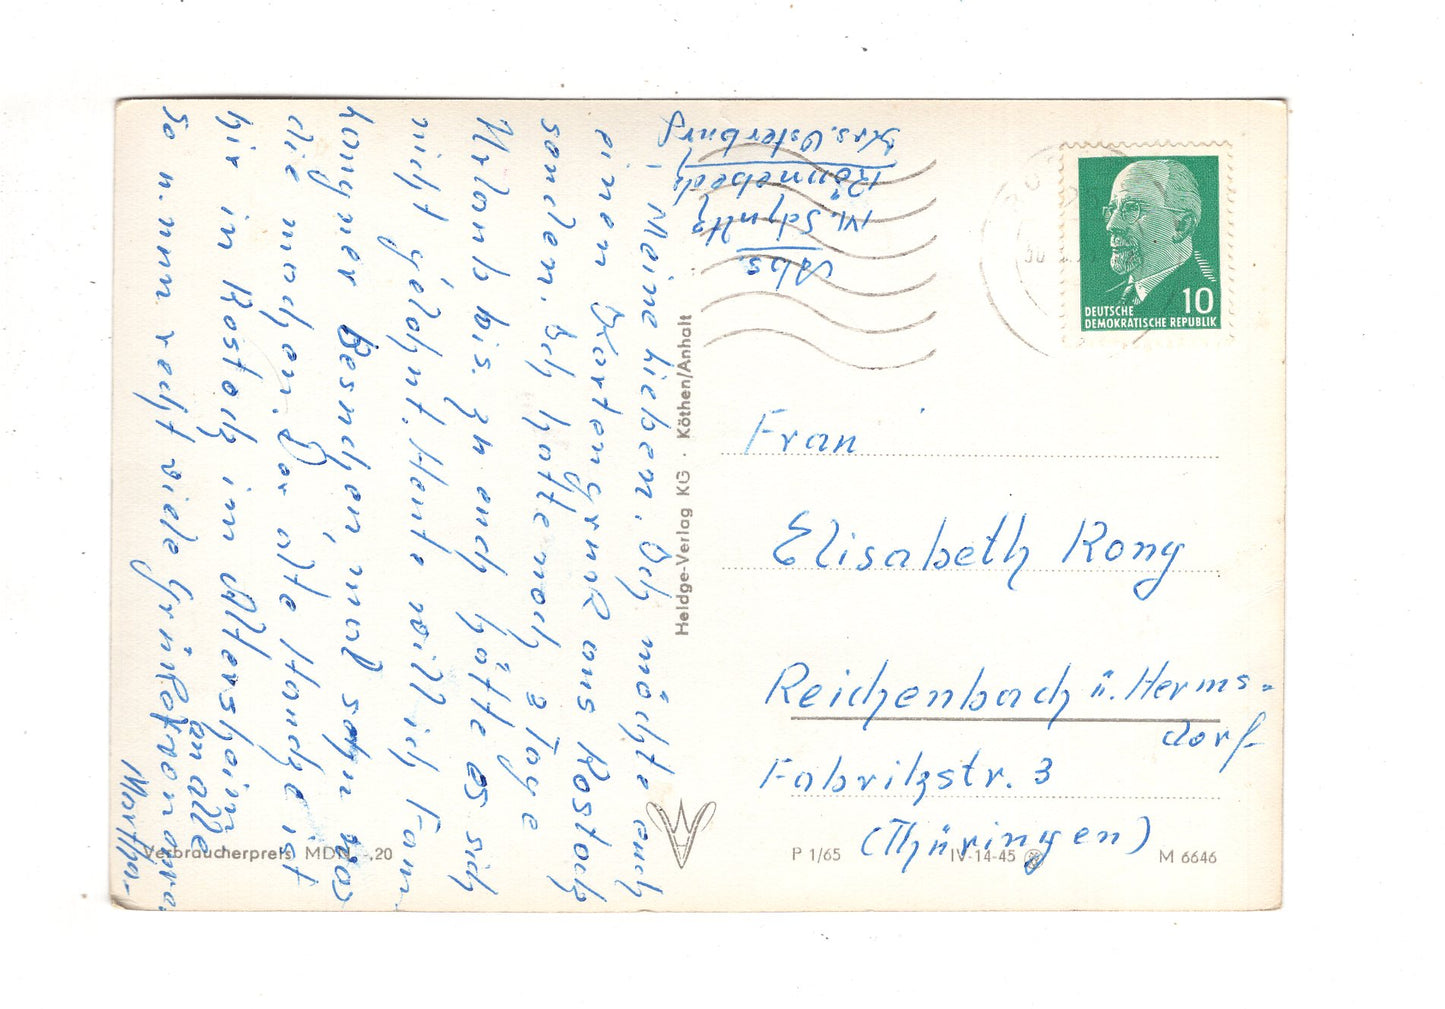 Abs.
M. Schultz
Rönnebeck
Krs. Osterburg
Meine Lieben. Ich möchte euch
einen Kartengruß aus Rostock
senden. Ich hatte noch 2 Tage
Urlaub bis. zu euch hätte es sich
nicht gelohnt. Heute will ich Fam.
Besuchen, mal sehn was
die machen. Der alte Hancke ist
hir in Rostock im Altersheim
So n. nun recht viele Grüße von eure
an alle
Martha
Heldge-Verlag KG · Köthen/Anhalt
Verbraucherpreis MDN -,20
10
DEUTSCHE
DEMOKRATISCHE REPUBLIK
Frau
Elisabeth Rony
Reichenbach ü. Herms=
dorf
Fabrikstr. 3
(Thüringen)
P 1/65 IV-14-45 M 6646